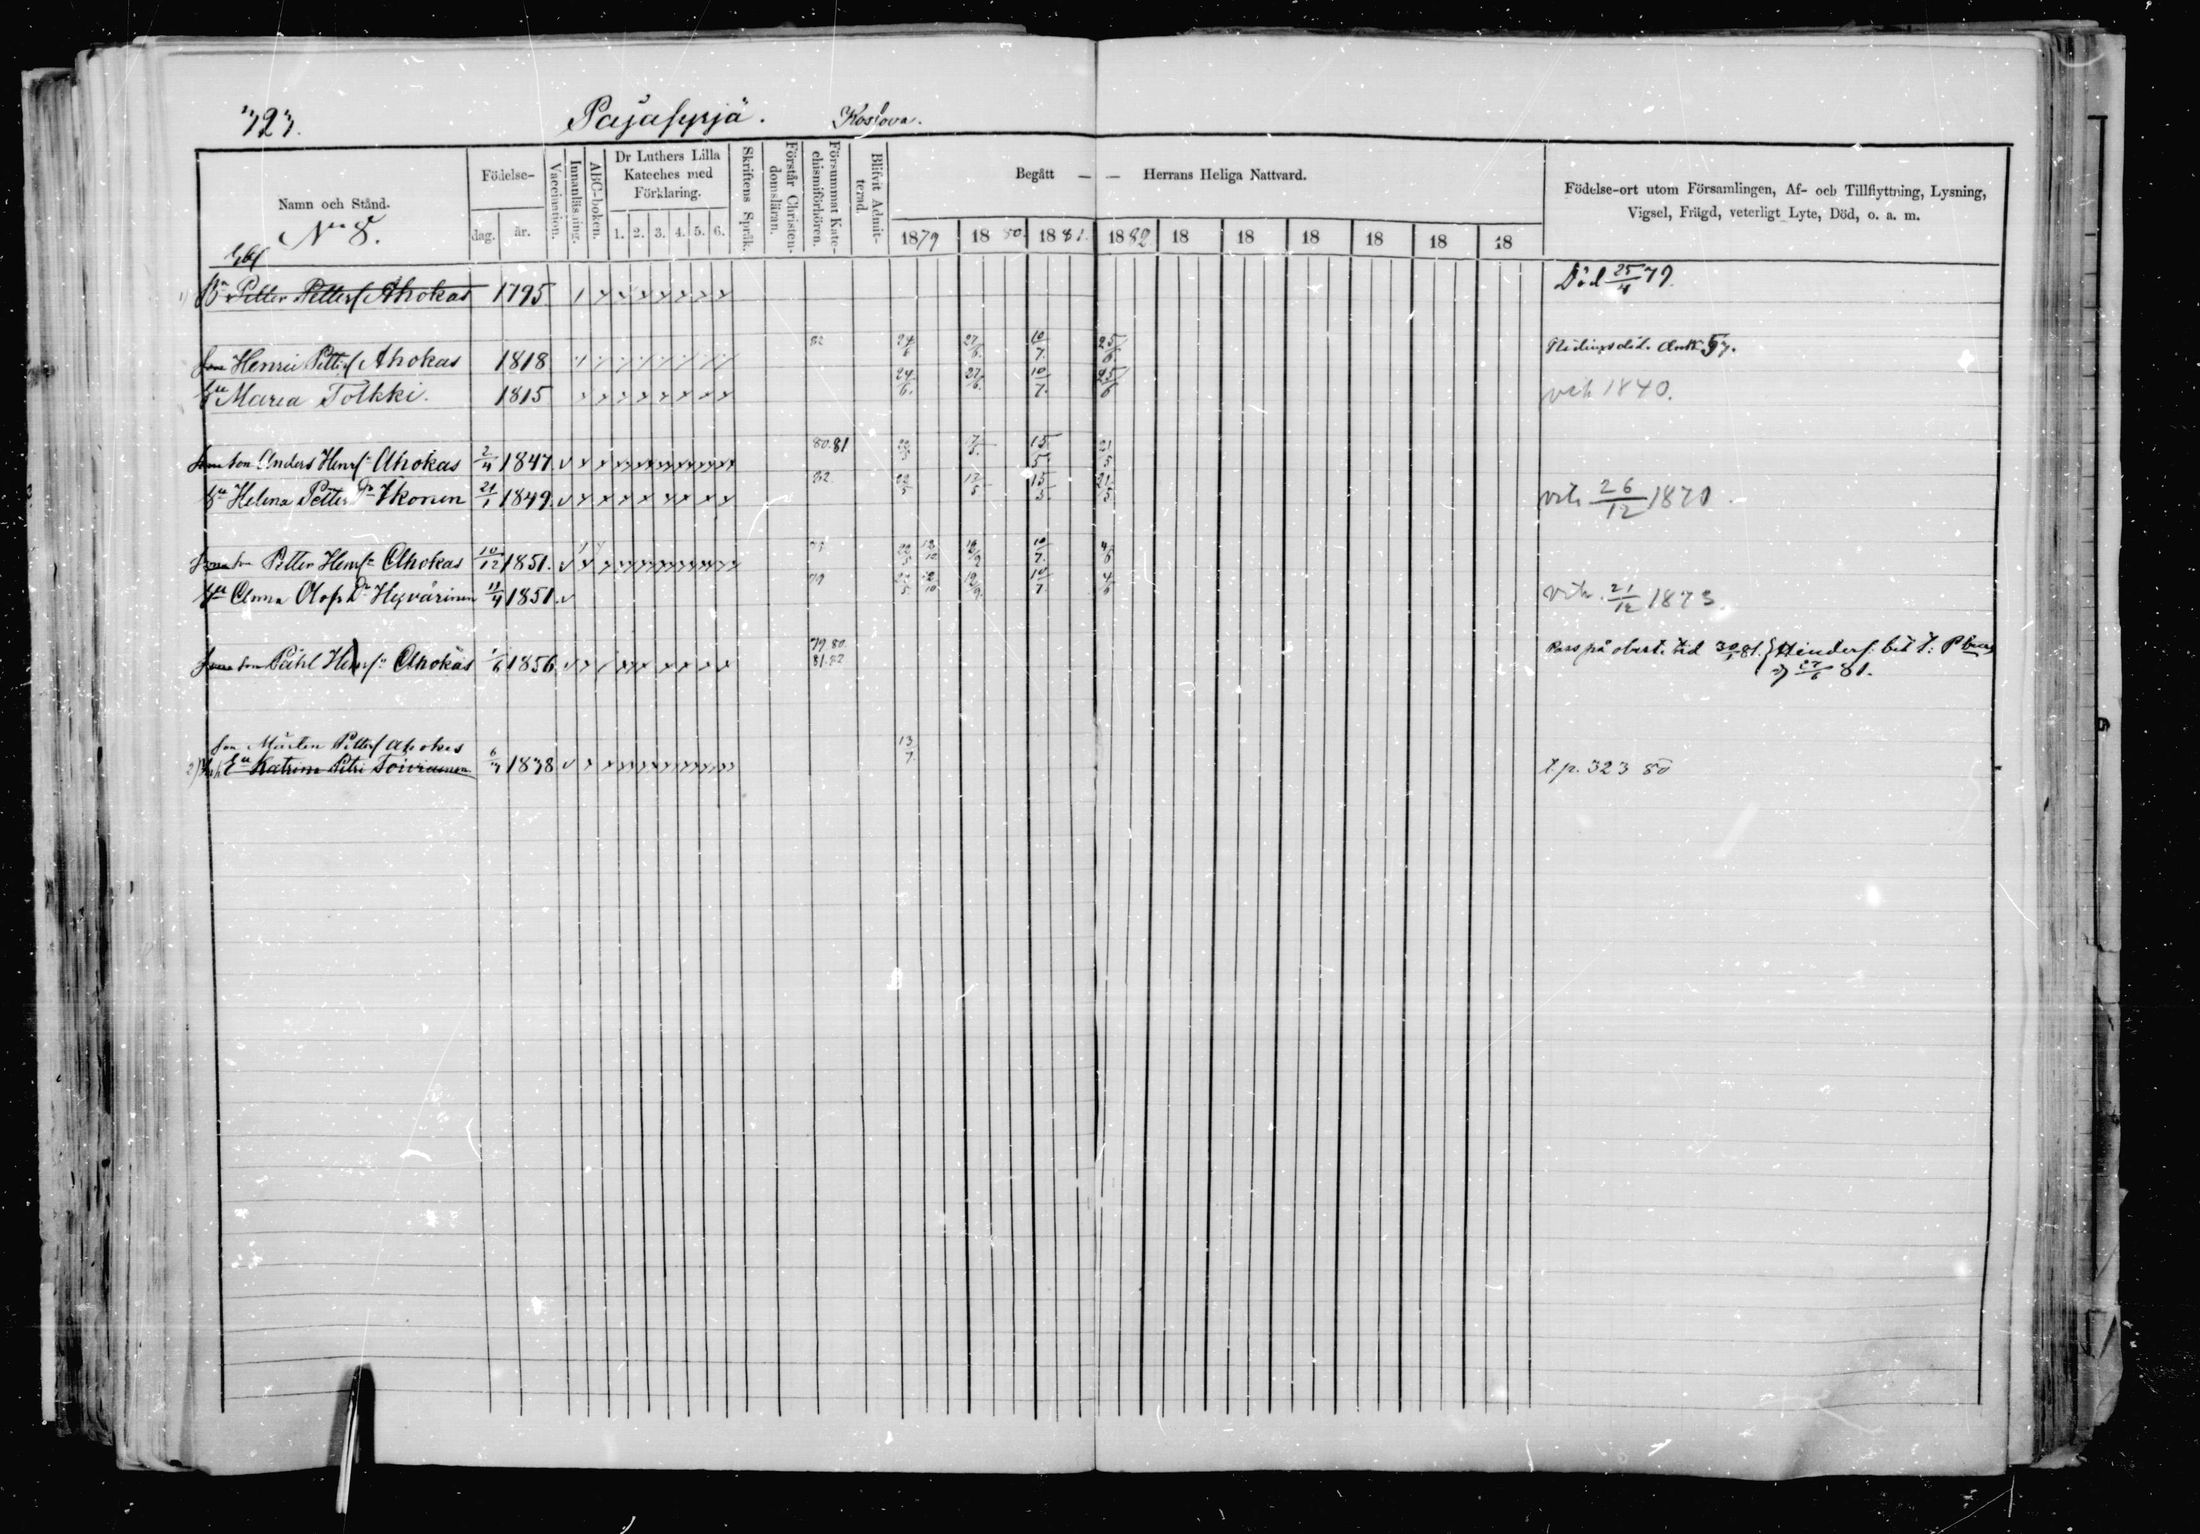 323.
Pajasyrjä. Koslova.
Namn och Stånd.
Födelse-
dag. år.
Vaccination.
Innanläsning.
ABC-boken.
Dr Luthers Lilla
Kateches med
Förklaring.
1. 2. 3. 4. 5. 6.
Skriftens Språk.
Förstår Christen-
domsläran.
Försummat Kate-
chismiförhören.
Blifvit Admit-
terad.
Begått — — Herrans Heliga Nattvard.
1879 1880. 1881. 1882 18 18 18 18 18 18
Födelse-ort utom Församlingen, Af- och Tillflyttning, Lysning,
Vigsel, Frägd, veterligt Lyte, Död, o. a. m.
No 8.
1) Petter Petters Ahokas 1795 Död 25/4 79.
Son Henric Petters Ahokas 1818 82 24/6 27/6. 10/7. 25/6 57.
Maria Tolkki. 1815 24/6. 27/6. 10/7. 25/6 vih 1840.
son Anders Henrs Ahokas 2/4 1847 80.81 15/5 21/5
Helena Petters Dr Ikonen 21/1 1849 82 22/5 17/5 15/5 21/5 vih. 26/12 1870.
son Petter Henrs Ahokas 10/12 1851. 79 22/5 12/10 10/7. 4/6
Anna Olofs Dr Hyvärinen 1851. 79 22/5 12/10 12/9. 10/7. 4/6 vih. 21/12 1873.
son Påhl Henrs Ahokas 1/6 1856 79 80. 81.82 Pass på obest. tid 81. Hinderf. bet. t. Pburg
27/6 81.
son Mårten Petters Ahokas 13/7
2) Ea Katrina Petri Toivianinen 1838 t.p. 323 80